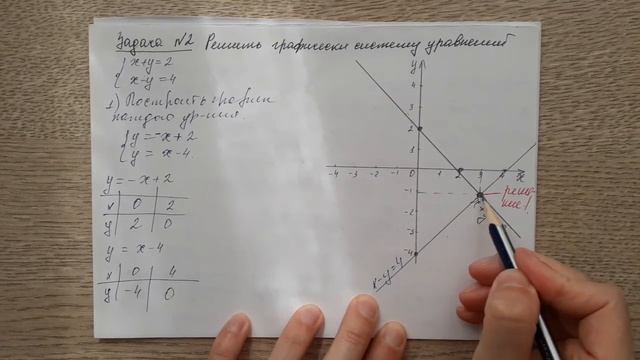 Задача №2 Решить графически систему уравнений
{ x+y=2
{ x-y=4
1) Построить графики
каждого ур-ния
{ y=-x+2
{ y= x-4.
y=-x+2
x 0 2
y 2 0
y = x-4
x 0 4
y -4 0
y
4
3
2
1
-4 -3 -2 -1 0 1 2 3 4 x
-1
-2
-3
-4
реше-
ние!
x-y=4